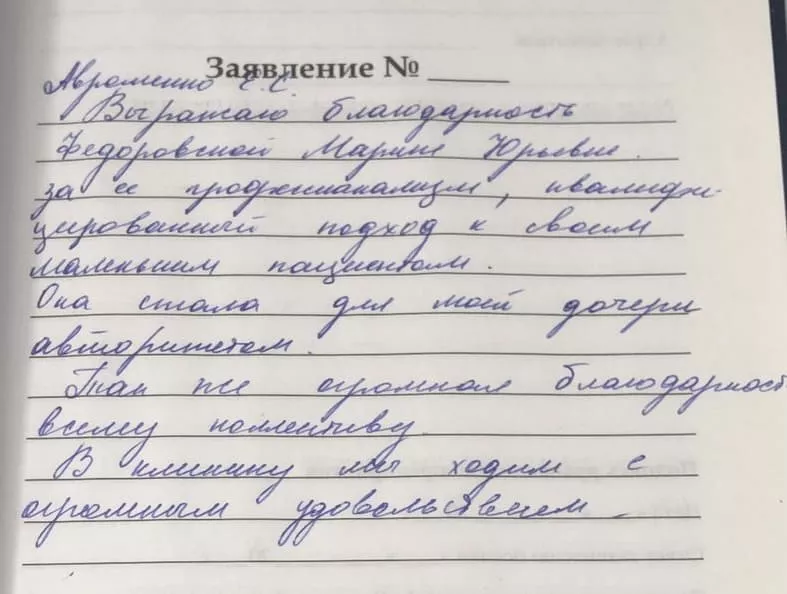 Заявление № _____
Авраменко Е.С.
Выражаю благодарность
Федоровской Марине Юрьевне.
за ее профессионализм, квалифи-
цированный подход к своим
маленьким пациентам.
Она стала для моей дочери
авторитетом.
Так же огромная благодарность
всему коллективу.
В клинику мы ходим с
огромным удовольствием.